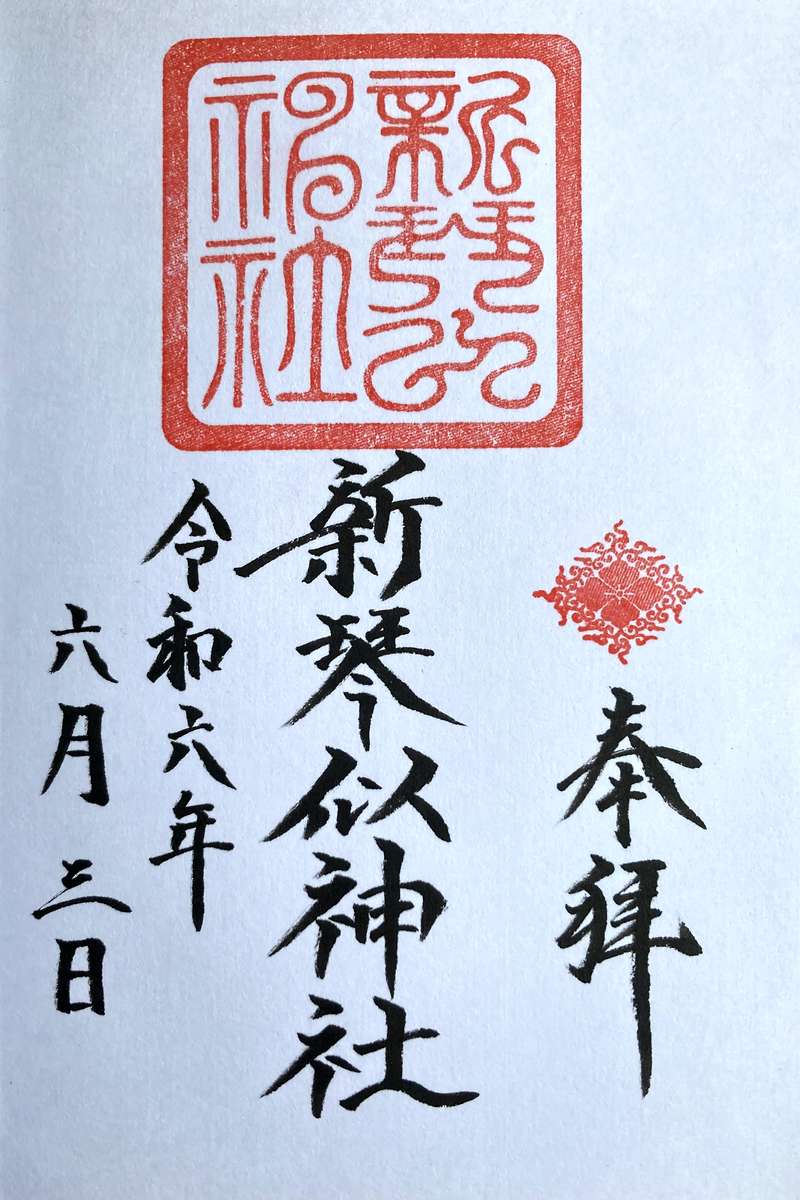 新琴似
神社
奉拝
新琴似神社
令和六年
六月三日